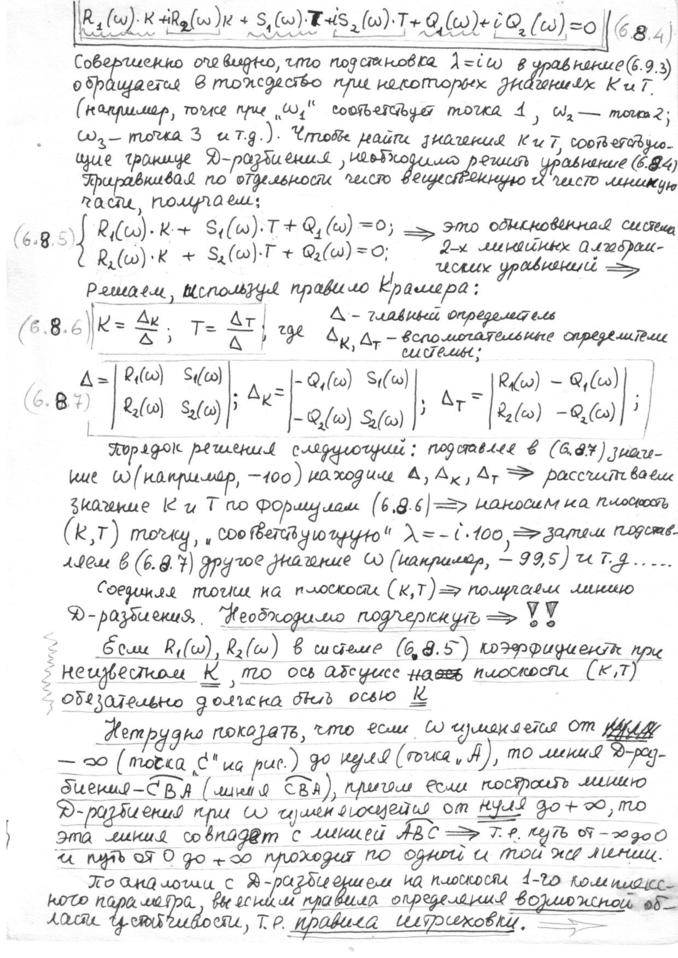 R₁(ω)·K + iR₂(ω)K + S₁(ω)·T + iS₂(ω)·T + Q₁(ω) + iQ₂(ω) = 0 (6.8.4)
Совершенно очевидно, что подстановка λ=iω в уравнение (6.9.3)
обращается в тождество при некоторых значениях K и T.
(например, точке при „ω₁" соответствует точка 1, ω₂ — точка 2;
ω₃ — точка 3 и т.д.). Чтобы найти значения K и T, соответствую-
щие границе D-разбиения, необходимо решить уравнение (6.8.4)
Приравнивая по отдельности чисто вещественную и чисто мнимую
части, получаем:
(6.8.5) { R₁(ω)·K + S₁(ω)·T + Q₁(ω) = 0; ⇒ это обыкновенная система
R₂(ω)·K + S₂(ω)·T + Q₂(ω) = 0; 2-х линейных алгебраи-
ческих уравнений ⇒
Решаем, используя правило Крамера:
(6.8.6) K = Δ_K/Δ ; T = Δ_T/Δ , где Δ - главный определитель
Δ_K, Δ_T - вспомогательные определители
системы;
(6.8.7) Δ = | R₁(ω) S₁(ω) | ; Δ_K = | -Q₁(ω) S₁(ω) | ; Δ_T = | R₁(ω) -Q₁(ω) | ;
| R₂(ω) S₂(ω) | | -Q₂(ω) S₂(ω) | | R₂(ω) -Q₂(ω) |
Порядок решения следующий: подставляя в (6.8.7) значе-
ние ω (например, -100) находим Δ, Δ_K, Δ_T ⇒ рассчитываем
значение K и T по формулам (6.8.6) ⇒ наносим на плоскость
(K,T) точку, „соответствующую" λ = -i·100, ⇒ затем подстав-
ляем в (6.8.7) другое значение ω (например, -99,5) и т.д.....
Соединяя точки на плоскости (K,T) ⇒ получаем линию
D-разбиения. Необходимо подчеркнуть ⇒ !!
Если R₁(ω), R₂(ω) в системе (6.8.5) коэффициенты при
неизвестном K, то ось абсцисс плоскости (K,T)
обязательно должна быть осью K
Нетрудно показать, что если ω изменяется от
-∞ (точка „C" на рис.) до нуля (точка „A), то линия D-раз-
биения - CBA (линия CBA), причем если построить линию
D-разбиения при ω изменяющейся от нуля до +∞, то
эта линия совпадет с линией ABC ⇒ т.е. путь от -∞ до 0
и путь от 0 до +∞ проходит по одной и той же линии.
По аналогии с D-разбиением на плоскости 1-го комплекс-
ного параметра, выясним правила определения возможной об-
ласти устойчивости, т.е. правила штриховки. ⇒